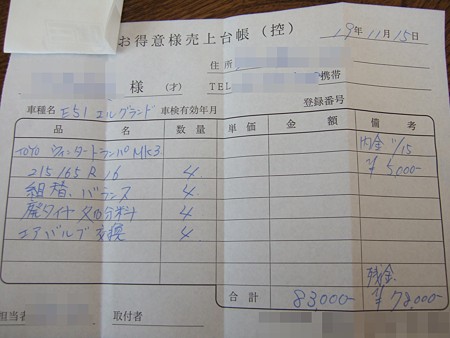 お得意様売上台帳(控)
19年11月15日
住所
様 (才) TEL 携帯
車種名 E51 エルグランド 車検有効年月 登録番号
品名 数量 単価 金額 備考
TOYO ウィンタートランパ MK3 内金 11/15
215/65R16 4 ¥5,000-
組替、バランス 4
廃タイヤ処分料 4
エアバルブ交換 4
残金
合計 83,000- ¥78,000-
担当者 取付者